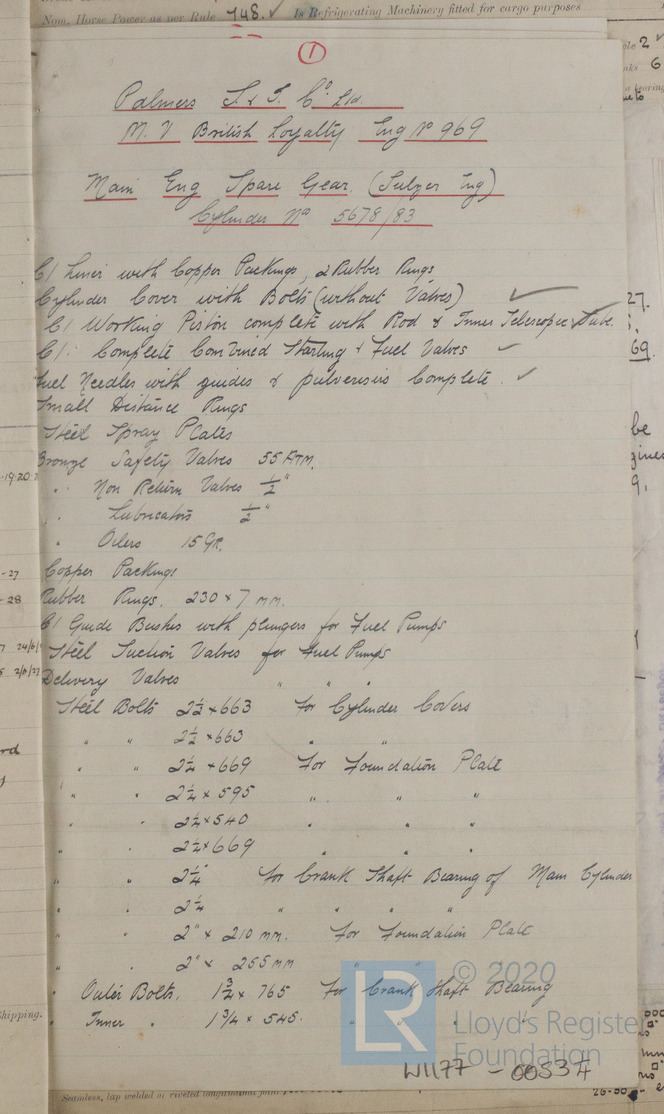 Nom. Horse Power as per Rule 748. ✓ Is Refrigerating Machinery fitted for cargo purposes
1
Palmers S. & I. Co. Ltd.
M.V. British Loyalty Eng No 969
Main Eng Spare Gear. (Sulzer Eng)
Cylinder Nos 5678/83
C/ Liner with Copper Packings, 2 Rubber Rings
Cylinder Cover with Bolts (without Valves) ✓
C/ Working Piston complete with Rod & Inner Telescopic Tube. ✓
C/. Complete Combined Starting & Fuel Valves ✓
Fuel Needles with guides & pulverisers Complete. ✓
Small Distance Rings
Steel Spray Plates
Bronze Safety Valves 55 ATM.
" Non Return Valves 1/2"
" Lubricators 1/2"
" Oilers 15 GR.
Copper Packings
Rubber Rings. 230 x 7 mm.
C/ Guide Bushes with plungers for Fuel Pumps
Steel Suction Valves for Fuel Pumps
Delivery Valves " " "
Steel Bolts 2 1/2 x 663 for Cylinder Covers
" " 2 1/2 x 663 " "
" " 2 1/4 x 669 for Foundation Plate
" " 2 1/2 x 595 " " "
" " 2 1/2 x 540 " " "
" " 2 1/2 x 669 " " "
" " 2 1/4" for Crank Shaft Bearing of Main Cylinder
" " 2 1/4 " " " "
" " 2" x 210 mm. for Foundation Plate
" " 2" x 255 mm " " "
" Outer Bolts. 1 3/4 x 765 for Crank Shaft Bearing
" Inner " 1 3/4 x 545. " " " "
LR © 2020
Lloyd's Register
Foundation
W1177 - 0053 7/
Seamless, lap welded or riveted longitudinal joint
26-30